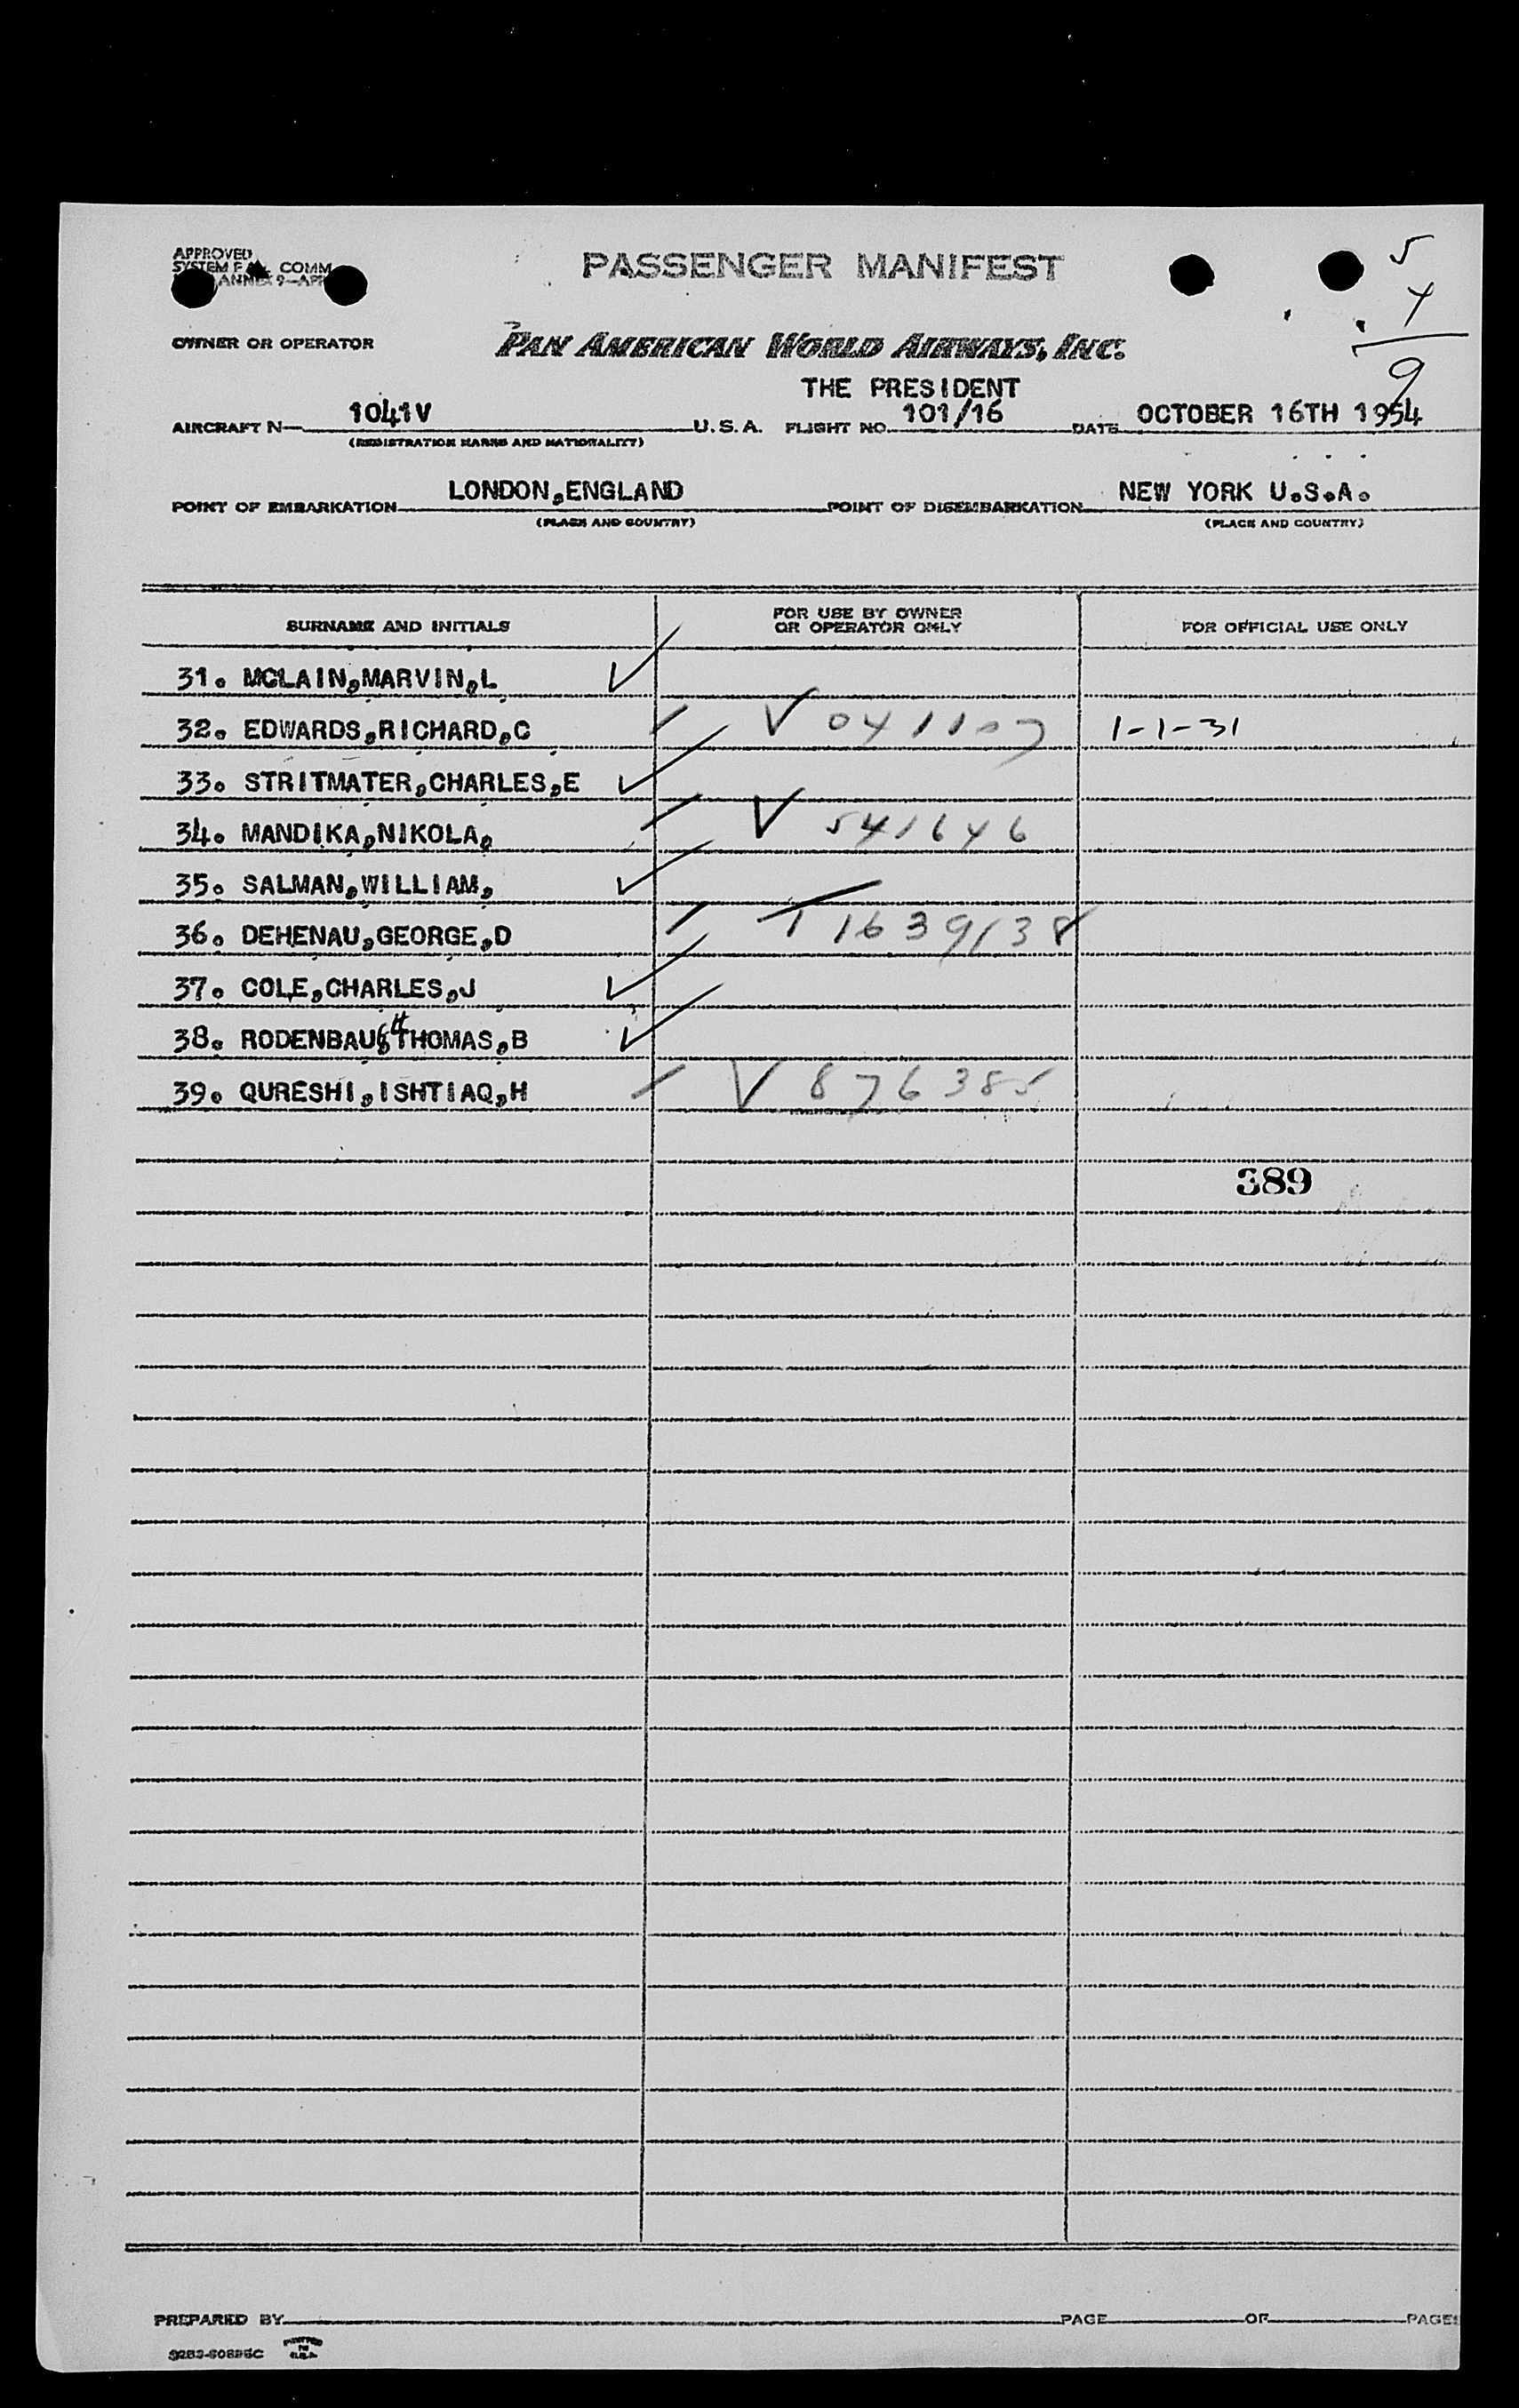 APPROVED
SYSTEM COMM
ANNEX 9—
PASSENGER MANIFEST
5
4
9
OWNER OR OPERATOR PAN AMERICAN WORLD AIRWAYS, INC.
THE PRESIDENT
AIRCRAFT N— 1041V U.S.A. FLIGHT NO. 101/16 DATE OCTOBER 16TH 1954
(REGISTRATION MARKS AND NATIONALITY)
POINT OF EMBARKATION LONDON,ENGLAND POINT OF DISEMBARKATION NEW YORK U.S.A.
(PLACE AND COUNTRY) (PLACE AND COUNTRY)
SURNAME AND INITIALS FOR USE BY OWNER OR OPERATOR ONLY FOR OFFICIAL USE ONLY
31. MCLAIN,MARVIN,L ✓
32. EDWARDS,RICHARD,C / V 041107 1-1-31
33. STRITMATER,CHARLES,E ✓
34. MANDIKA,NIKOLA, / V 541646
35. SALMAN,WILLIAM, ✓
36. DEHENAU,GEORGE,D / T 1639138
37. COLE,CHARLES,J ✓
38. RODENBAUGH THOMAS,B ✓
39. QURESHI,ISHTIAQ,H / V 876385
389
PREPARED BY PAGE OF PAGES
PRINTED IN U.S.A.